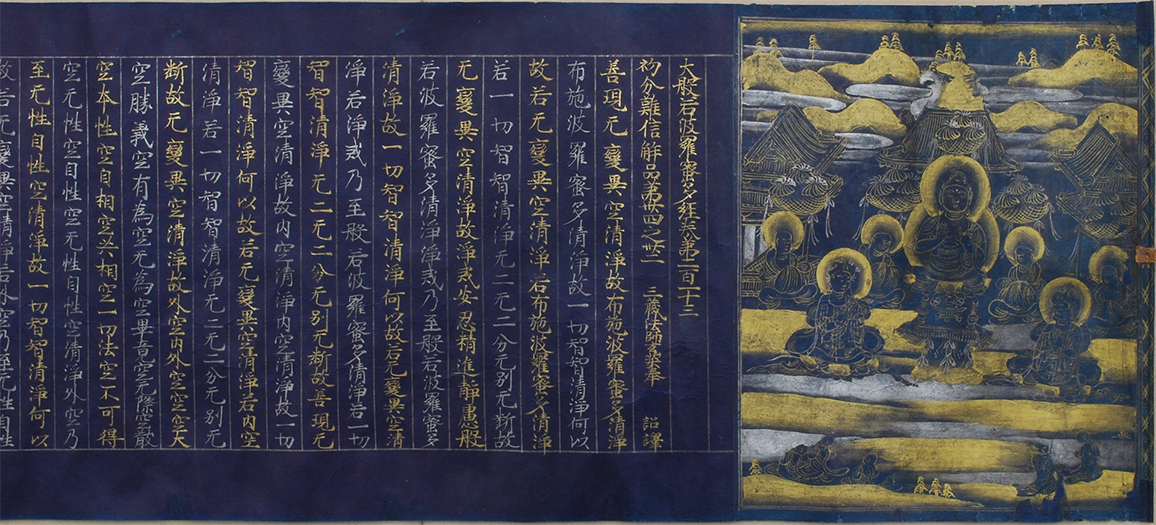 大般若波羅蜜多經卷第二百一十三
初分難信解品第卅四之卅二　三藏法師玄奘奉　詔譯
善現无變異空清淨故布施波羅蜜多清淨
布施波羅蜜多清淨故一切智智清淨何以
故若无變異空清淨若布施波羅蜜多清淨
若一切智智清淨无二无二分无別无斷故
无變異空清淨故淨戒安忍精進靜慮般
若波羅蜜多清淨淨戒乃至般若波羅蜜多
清淨故一切智智清淨何以故若无變異空清
淨若淨戒乃至般若波羅蜜多清淨若一切
智智清淨无二无二分无別无斷故善現无
變異空清淨故內空清淨內空清淨故一切
智智清淨何以故若无變異空清淨若內空
清淨若一切智智清淨无二无二分无別无
斷故无變異空清淨故外空內外空空空大
空勝義空有為空无為空畢竟空无際空散
空本性空自相空共相空一切法空不可得
空无性空自性空无性自性空清淨外空乃
至无性自性空清淨故一切智智清淨何以
故若无變異空清淨若外空乃至无性自性